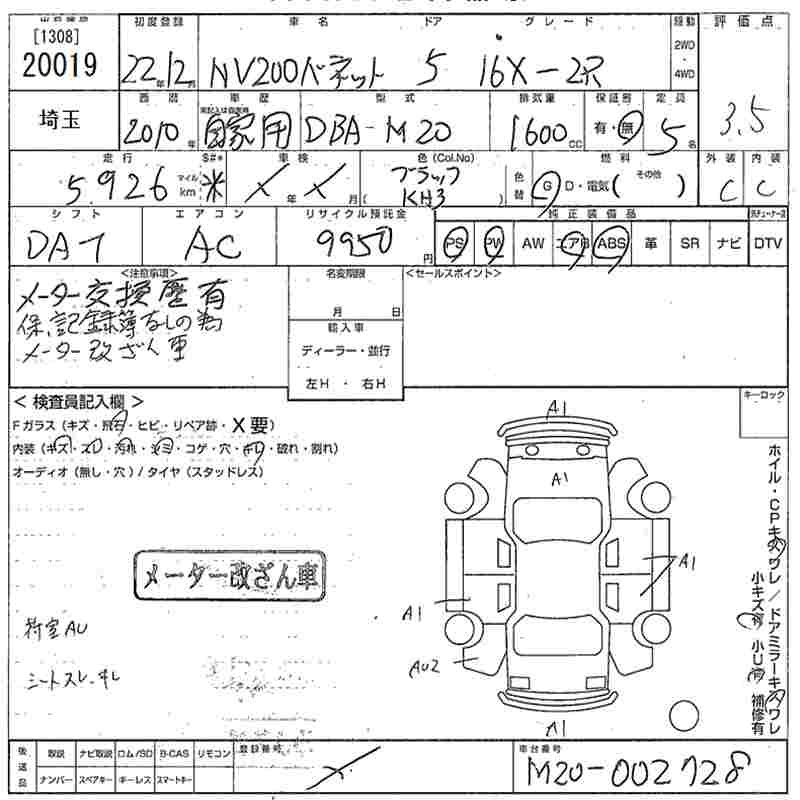 [1308]
20019
初度登録
22年12月
車名 ドア グレード
NV200バネット 5 16X-2R
駆動
2WD
・
4WD
評価点
3.5
埼玉
西暦
2010年
車歴
自家用
型式
DBA-M20
排気量
1600cc
保証書
有・無
定員
5名
走行
5,926
マイル
km
S#*
*
車検
年 月
色(Col.No)
ブラック
KH3
色替
燃料
G D・電気( その他 )
外装 内装
C C
シフト
DAT
エアコン
AC
リサイクル預託金
9950円
純正装備品
PS PW AW エアB ABS 革 SR ナビ DTV
<注意事項>
メーター交換歴有
保、記録簿なしの為
メーター改ざん車
名変期限
月 日
輸入車
ディーラー・並行
左H ・ 右H
<セールスポイント>
キーロック
< 検査員記入欄 >
Fガラス(キズ・飛石・ヒビ・リペア跡・X要)
内装(キズ・スレ・汚れ・シミ・コゲ・穴・キレ・破れ・割れ)
オーディオ(無し・穴)/タイヤ(スタッドレス)
メーター改ざん車
荷室AU
シートスレ.キレ
A1
A1
A1
A1
AU2
A1
ホイル・CPキズワレ/ドアミラーキズワレ
小キズ有 小U有 補修有
後送品
取説 ナビ取説 ロム/SD B-CAS リモコン
ナンバー スペアキー キーレス スマートキー
登録番号
車台番号
M20-002728